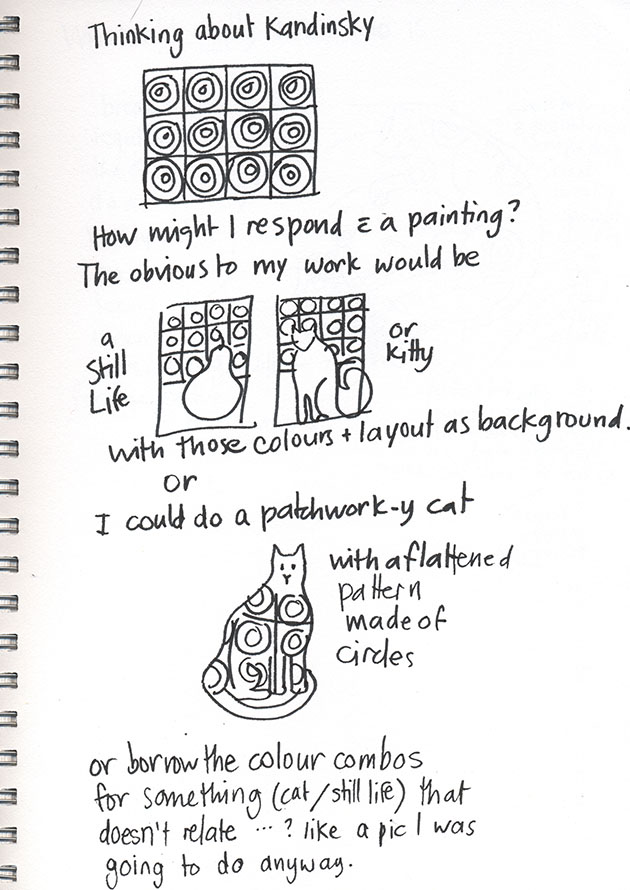 Thinking about Kandinsky
How might I respond ε a painting?
The obvious to my work would be
a
Still
Life
or
kitty
with those colours + layout as background.
or
I could do a patchwork-y cat
with a flattened
pattern
made of
circles
or borrow the colour combos
for something (cat/still life) that
doesn't relate ...? like a pic I was
going to do anyway.